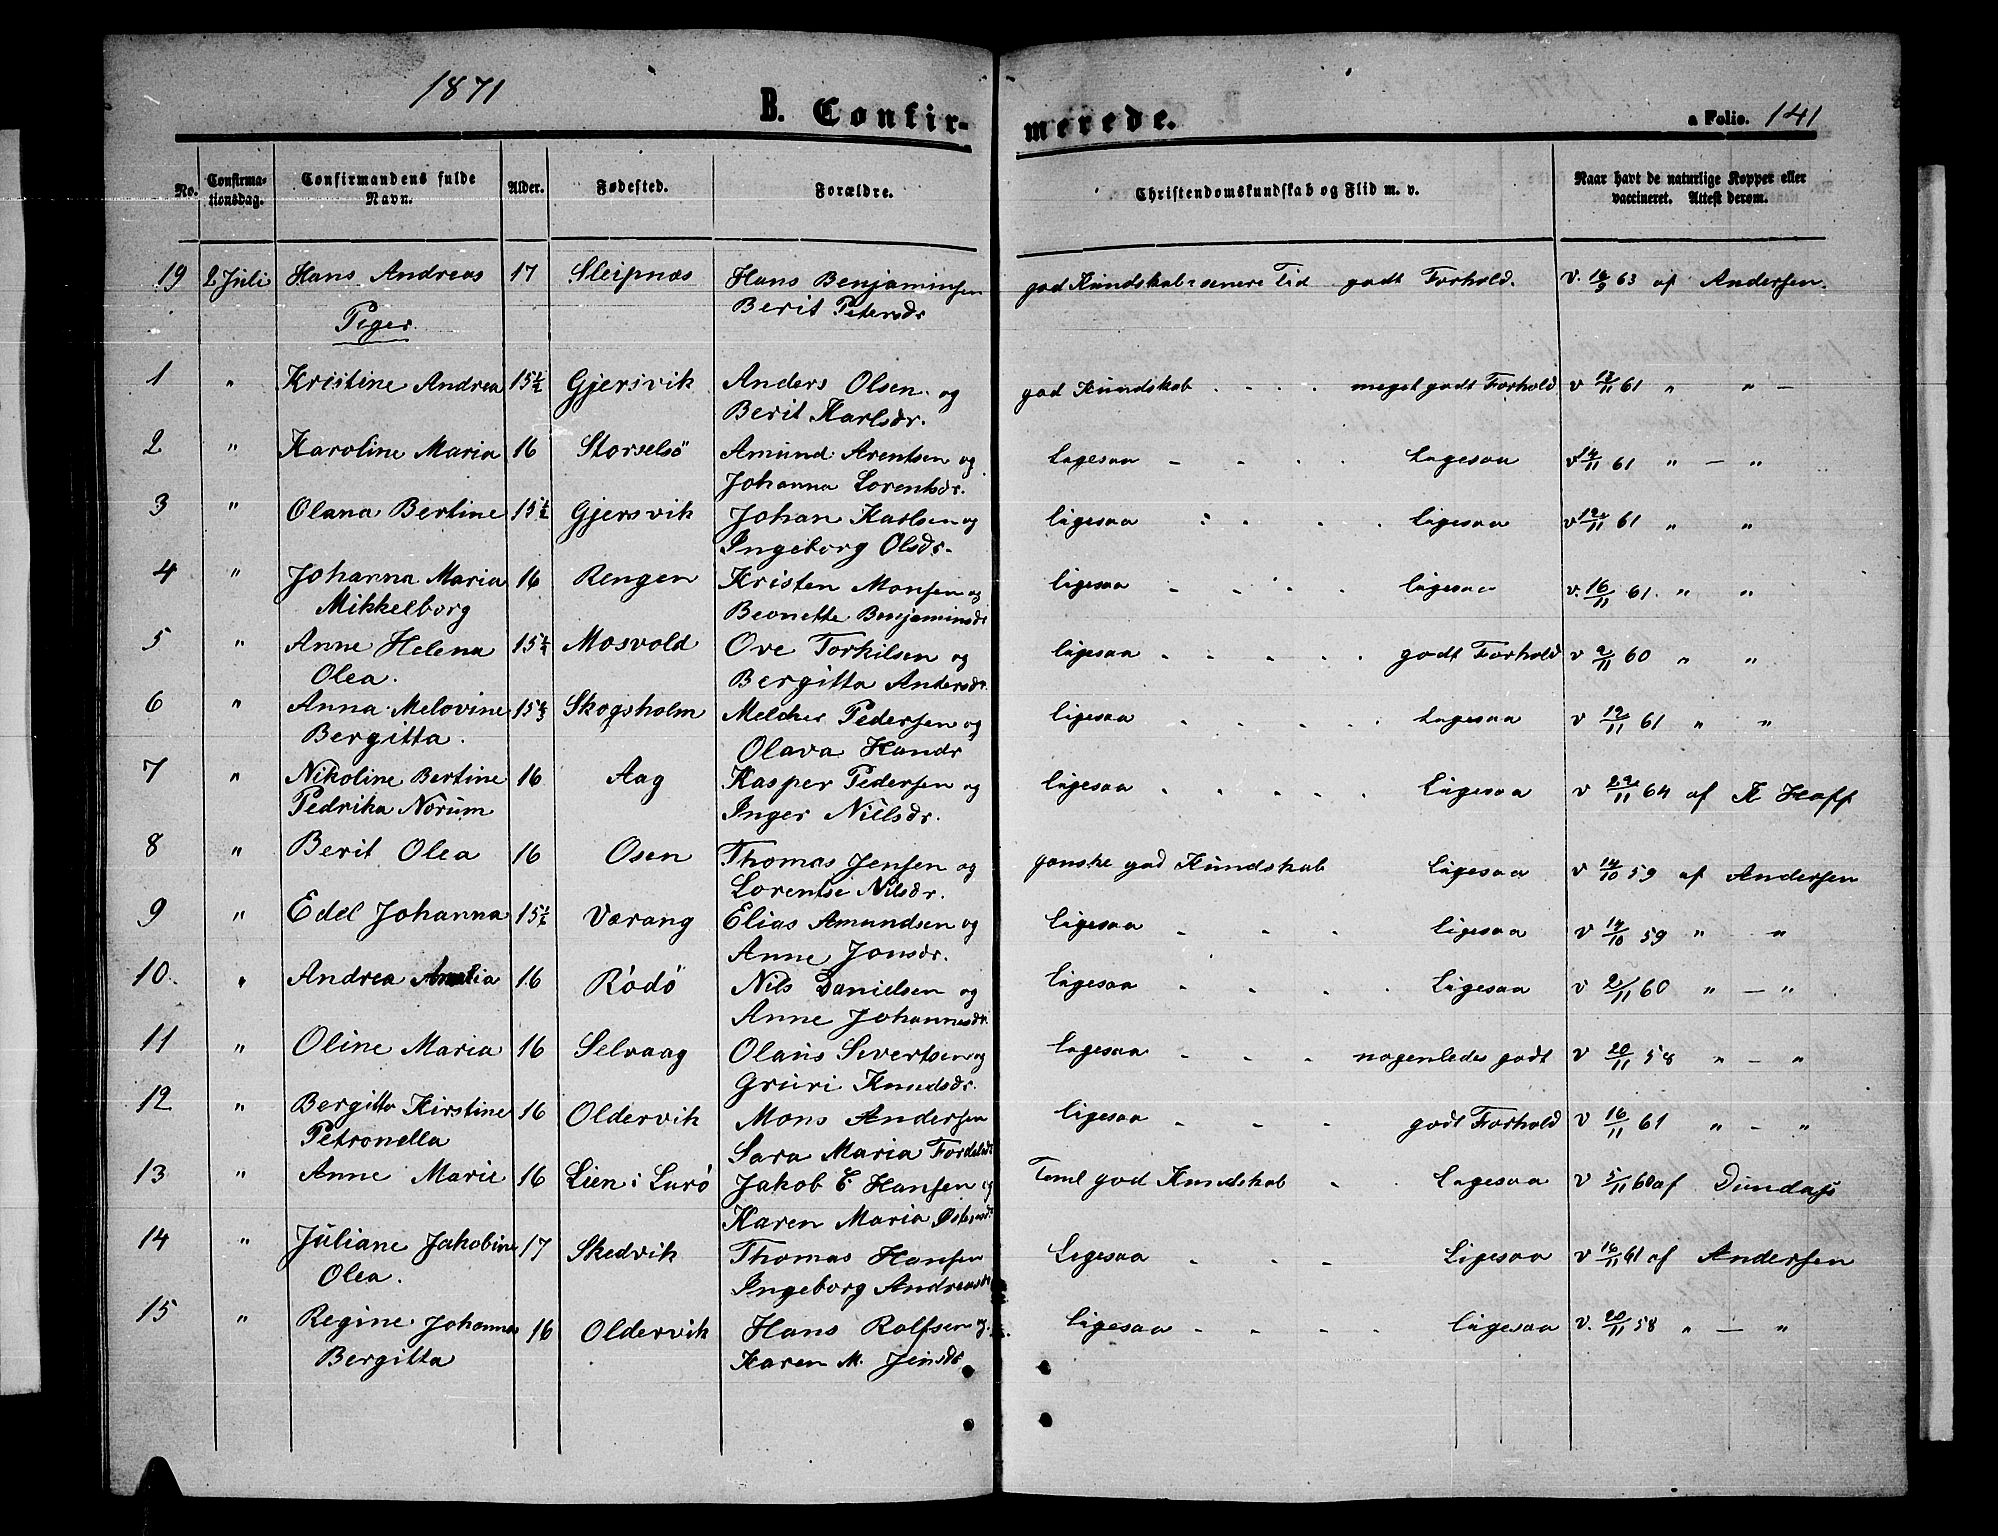 1871
B. Confirmerede.
a Folio. 141
No. Confirmationsdag. Confirmandens fulde Navn. Alder. Fødested. Forældre. Christendomskundskab og Flid m. v. Naar havt de naturlige Kopper eller vaccineret. Attest derom.
19 2 Juli Hans Andreas 17 Sleipnæs Hans Benjaminsen god Kundskab senere Tid godt Forhold. v. 63 af Andersen.
Berit Petersdr
Piger
1 " Kristine Andrea 15½ Gjersvik Anders Olsen og god Kundskab . . . . meget godt Forhold v 12/11 61 " " -
Berit Karlsdr.
2 " Karoline Maria 16 Storselsö Amund Arentsen og Ligesaa - . . . Ligesaa v 14/11 61 " - "
Johanna Lorentsdr.
3 " Olana Bertine 15½ Gjersvik Johan Karlsen og Ligesaa : . . . Ligesaa v 12/11 61 " "
Ingeborg Olsdr.
4 " Johanna Maria 16 Rengen Kristen Monsen og Ligesaa - . . . Ligesaa v. 16/11 61. " "
Mikkelborg Beonette Benjaminsdr
5 " Anne Helena Mosvold Ove Torkilsen og Ligesaa . . . . godt Forhold v 2/11 60 " "
Olea. Bergitta Andersdr.
6 " Anna Melovine Skogsholm Melcher Pedersen og Ligesaa . . . . Ligesaa v 12/11 61 " "
Bergitta. Olava Hansdr
7 " Nikoline Bertine 16 Aag Kasper Pedersen og Ligesaa . . . . . Ligesaa v 29/11 64 af K Hoff
Pedrika Norum Inger Nilsdr.
8 " Berit Olea 16 Osen Thomas Jensen og ganske god Kundskab Ligesaa v 14/10 59 af Andersen
Lorentse Nilsdr.
9 " Edel Johanna 15½ Værang Elias Amundsen og Ligesaa - . . Ligesaa v 14/10 59 " - "
Anne Jonsdr.
10. " Andrea Amalia 16 Rödö Nils Danielsen og Ligesaa . . . . Ligesaa v 2/11 60 " - "
Anne Johannesdr.
11 " Oline Maria 16 Selvaag Olaus Sivertsen og Ligesaa . . . nogenledes godt v 20/11 58 " - "
Gruri Knudsdr.
12 " Bergitta Kirstine 16 Oldervik Mons Andersen Ligesaa - . . godt Forhold v 16/11 61 " - "
Petronella Sara Maria
13 " Anne Marie 16 Lien i Lurø Jakob E Hansen og Teml god Kundskab . Ligesaa v 5/11 60 af Dundass
Karen Maria
14 " Juliane Jakobine 17 Skedvik Thomas Hansen Ligesaa . . . Ligesaa v 16/11 61 af Andersen
Olea. Ingeborg Andreasdr
15 " Regine Johanna 16 Oldervik Hans Rolfsen og Ligesaa - . . . Ligesaa v. 20/11 58 " - "
Bergitta Karen M. Jensdr